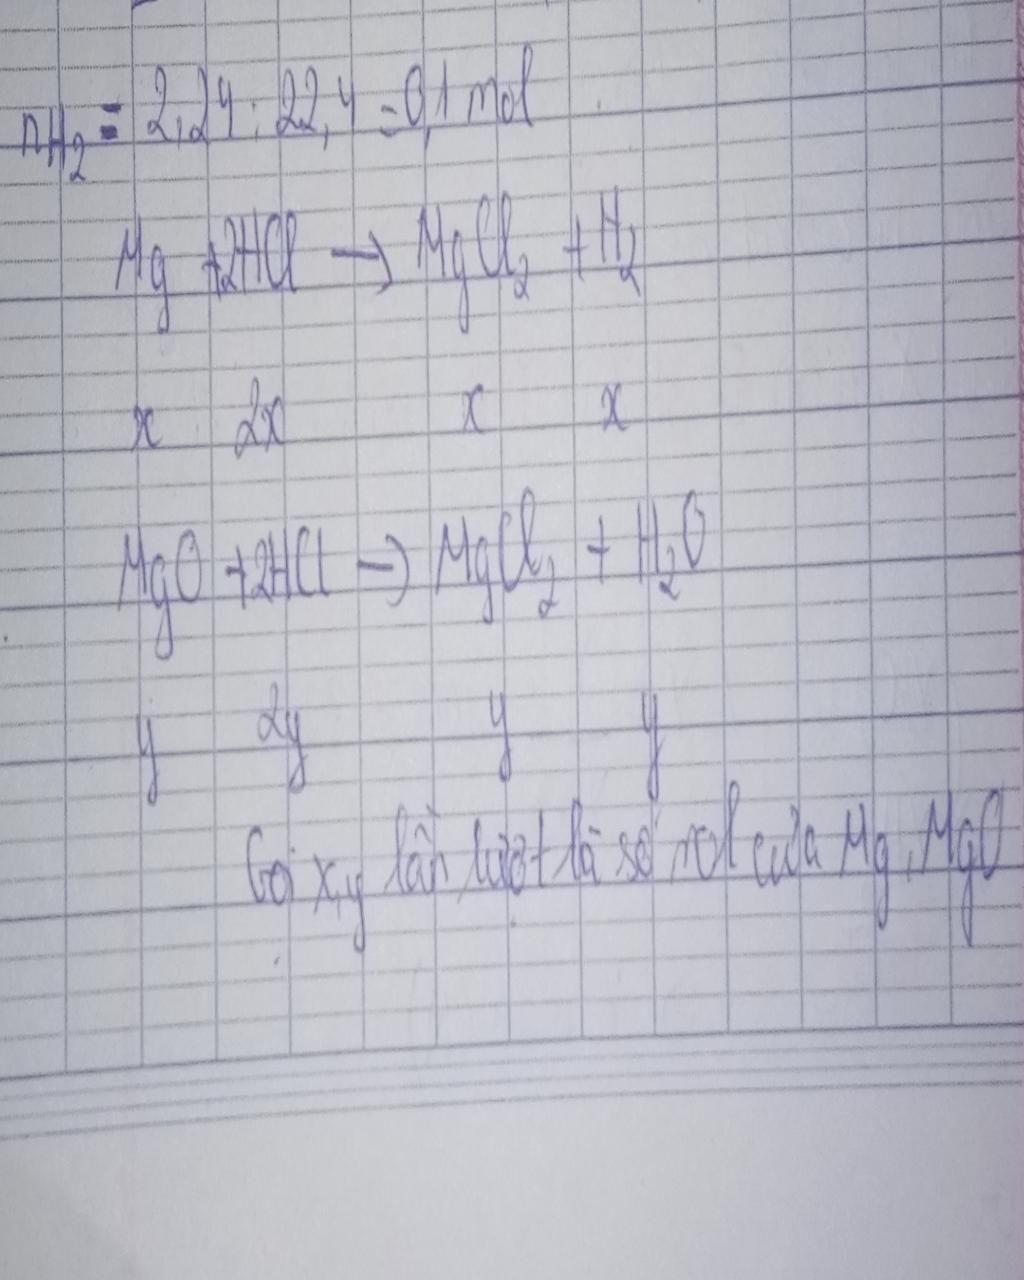 nH₂ = 2,24 : 22,4 = 0,1 mol
Mg +2HCl → MgCl₂ + H₂
x 2x x x
MgO +2HCl → MgCl₂ + H₂O
y 2y y y
Gọi x,y lần lượt là số mol của Mg, MgO